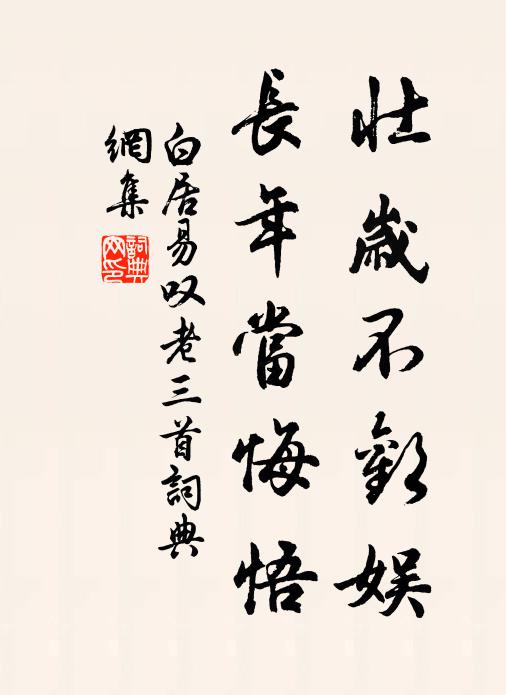 壯歲不歡娛
長年當悔悟
白居易叹老三首詞典
網集
詞典網印